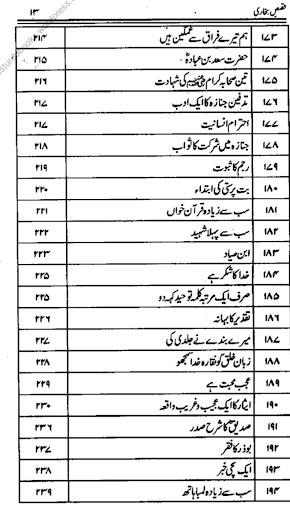 قصص بخاری ۱۳
۱۷۳ ہم تیرے فراق سے غمگین ہیں ۲۱۴
۱۷۴ حضرت سعد بن عبادہؓ ۲۱۵
۱۷۵ تین صحابہ کرام کی شہادت ۲۱۶
۱۷۶ تدفین جنازہ کا ایک ادب ۲۱۷
۱۷۷ احترام انسانیت ۲۱۷
۱۷۸ جنازہ میں شرکت کا ثواب ۲۱۸
۱۷۹ رجم کا ثبوت ۲۱۹
۱۸۰ بت پرستی کی ابتداء ۲۲۰
۱۸۱ سب سے زیادہ قرآن خواں ۲۲۱
۱۸۲ سب سے پہلا شہید ۲۲۲
۱۸۳ ابن صیاد ۲۲۳
۱۸۴ خدا کا شکر ہے ۲۲۵
۱۸۵ صرف ایک مرتبہ کلمہ توحید کہہ دو ۲۲۵
۱۸۶ تقدیر کا بہانہ ۲۲۶
۱۸۷ میرے بندے نے جلدی کی ۲۲۷
۱۸۸ زبان خلق کو نقارہ خدا سمجھو ۲۲۸
۱۸۹ عجب محبت ہے ۲۲۹
۱۹۰ ایثار کا ایک عجیب و غریب واقعہ ۲۳۰
۱۹۱ صدیقؓ کا شرح صدر ۲۳۶
۱۹۲ بوذر کا فقر ۲۳۷
۱۹۳ ایک سچی خبر ۲۳۸
۱۹۴ سب سے زیادہ لمبا ہاتھ ۲۳۹